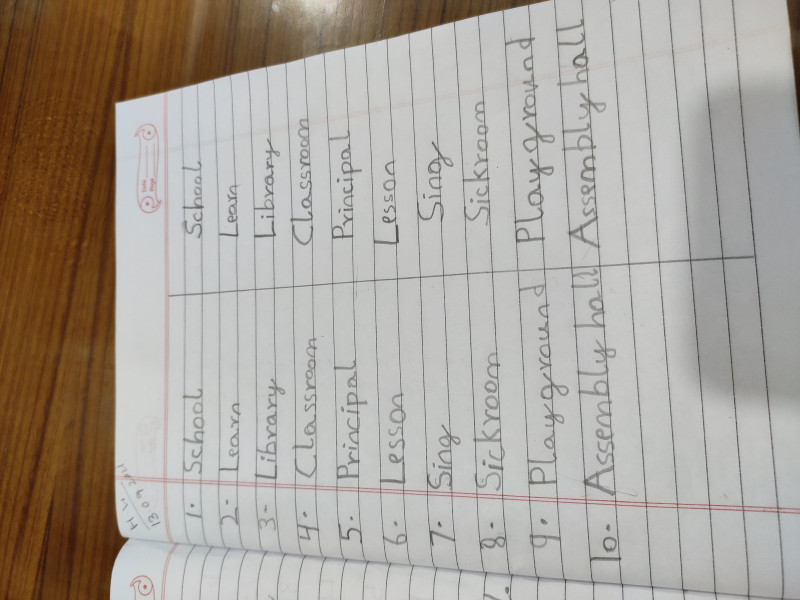 H W
1. School School
2. Learn Learn
3. Library Library
4. Classroom Classroom
5. Principal Principal
6. Lesson Lesson
7. Sing Sing
8. Sickroom Sickroom
9. Playground Playground
10. Assembly hall Assembly hall